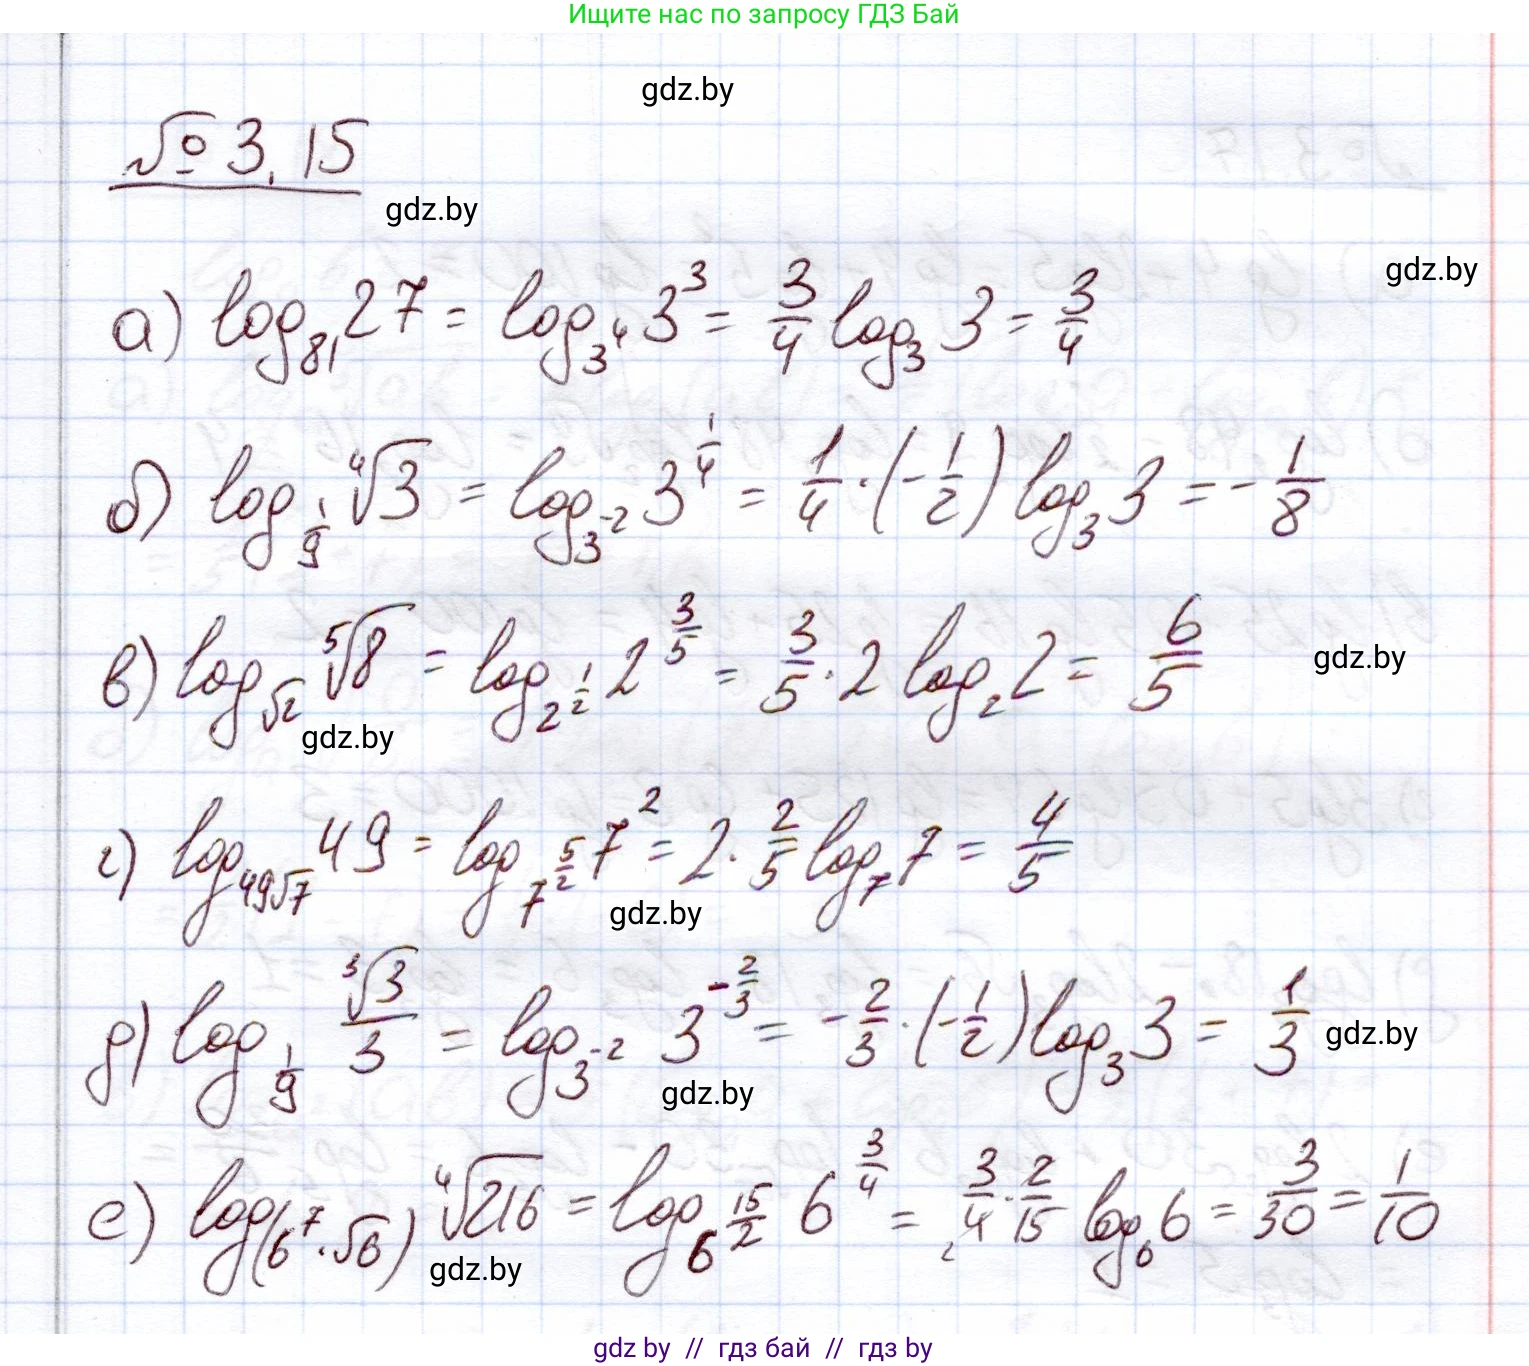 Ищите нас по запросу ГДЗ Бай
gdz.by
№ 3.15
gdz.by
gdz.by
а) log₈₁ 27 = log_{3⁴} 3³ = 3/4 log₃ 3 = 3/4
б) log_{1/9} ⁴√3 = log_{3⁻²} 3^{1/4} = 1/4 · (-1/2) log₃ 3 = - 1/8
в) log_{√2} ⁵√8 = log_{2^{1/2}} 2^{3/5} = 3/5 · 2 log₂ 2 = 6/5
gdz.by
gdz.by
г) log_{49√7} 49 = log_{7^{5/2}} 7² = 2 · 2/5 log₇ 7 = 4/5
gdz.by
д) log_{1/9} ³√3/3 = log_{3⁻²} 3^{-2/3} = - 2/3 · (-1/2) log₃ 3 = 1/3
gdz.by
gdz.by
е) log_{(6⁷·√6)} ⁴√216 = log_{6^{15/2}} 6^{3/4} = 3/4 · 2/15 log₆ 6 = 3/30 = 1/10
gdz.by
gdz by // гдз бай // гдз by